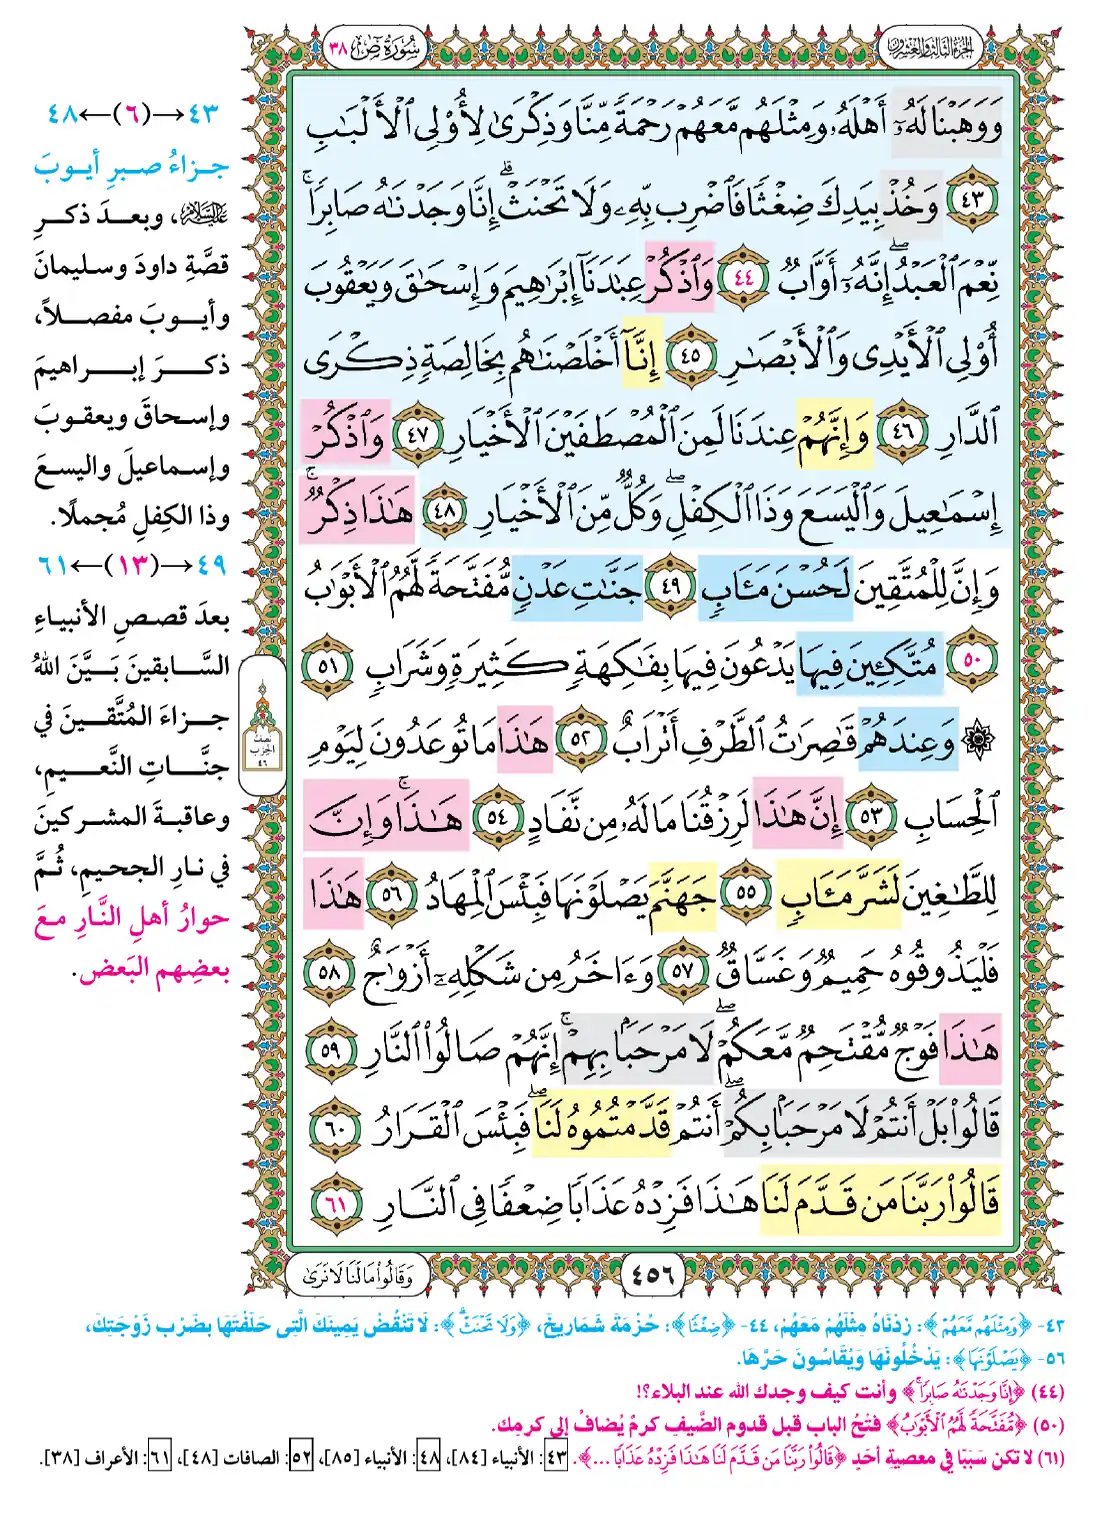 الجزء الثالث والعشرون
سُورَةُ صٓ ٣٨
وَوَهَبْنَا لَهُۥٓ أَهْلَهُۥ وَمِثْلَهُم مَّعَهُمْ رَحْمَةً مِّنَّا وَذِكْرَىٰ لِأُوْلِى ٱلْأَلْبَٰبِ
٤٣ وَخُذْ بِيَدِكَ ضِغْثًا فَٱضْرِب بِّهِۦ وَلَا تَحْنَثْ ۗ إِنَّا وَجَدْنَٰهُ صَابِرًا ۚ
نِّعْمَ ٱلْعَبْدُ ۖ إِنَّهُۥٓ أَوَّابٌ ٤٤ وَٱذْكُرْ عِبَٰدَنَآ إِبْرَٰهِيمَ وَإِسْحَٰقَ وَيَعْقُوبَ
أُوْلِى ٱلْأَيْدِى وَٱلْأَبْصَٰرِ ٤٥ إِنَّآ أَخْلَصْنَٰهُم بِخَالِصَةٍ ذِكْرَى
ٱلدَّارِ ٤٦ وَإِنَّهُمْ عِندَنَا لَمِنَ ٱلْمُصْطَفَيْنَ ٱلْأَخْيَارِ ٤٧ وَٱذْكُرْ
إِسْمَٰعِيلَ وَٱلْيَسَعَ وَذَا ٱلْكِفْلِ ۖ وَكُلٌّ مِّنَ ٱلْأَخْيَارِ ٤٨ هَٰذَا ذِكْرٌ ۚ
وَإِنَّ لِلْمُتَّقِينَ لَحُسْنَ مَـَٔابٍ ٤٩ جَنَّٰتِ عَدْنٍ مُّفَتَّحَةً لَّهُمُ ٱلْأَبْوَٰبُ
٥٠ مُتَّكِـِٔينَ فِيهَا يَدْعُونَ فِيهَا بِفَٰكِهَةٍ كَثِيرَةٍ وَشَرَابٍ ٥١
۞ وَعِندَهُمْ قَٰصِرَٰتُ ٱلطَّرْفِ أَتْرَابٌ ٥٢ هَٰذَا مَا تُوعَدُونَ لِيَوْمِ
ٱلْحِسَابِ ٥٣ إِنَّ هَٰذَا لَرِزْقُنَا مَا لَهُۥ مِن نَّفَادٍ ٥٤ هَٰذَا ۚ وَإِنَّ
لِلطَّٰغِينَ لَشَرَّ مَـَٔابٍ ٥٥ جَهَنَّمَ يَصْلَوْنَهَا فَبِئْسَ ٱلْمِهَادُ ٥٦ هَٰذَا
فَلْيَذُوقُوهُ حَمِيمٌ وَغَسَّاقٌ ٥٧ وَءَاخَرُ مِن شَكْلِهِۦٓ أَزْوَٰجٌ ٥٨
هَٰذَا فَوْجٌ مُّقْتَحِمٌ مَّعَكُمْ ۖ لَا مَرْحَبًۢا بِهِمْ ۚ إِنَّهُمْ صَالُوا۟ ٱلنَّارِ ٥٩
قَالُوا۟ بَلْ أَنتُمْ لَا مَرْحَبًۢا بِكُمْ ۖ أَنتُمْ قَدَّمْتُمُوهُ لَنَا ۖ فَبِئْسَ ٱلْقَرَارُ ٦٠
قَالُوا۟ رَبَّنَا مَن قَدَّمَ لَنَا هَٰذَا فَزِدْهُ عَذَابًا ضِعْفًا فِى ٱلنَّارِ ٦١
٤٥٦
وَقَالُوا۟ مَا لَنَا لَا نَرَىٰ
٤٣→(٦)←٤٨
جزاءُ صبرِ أيوبَ
عليه السلام، وبعدَ ذكرِ
قصَّةِ داودَ وسليمانَ
وأيوبَ مفصلاً،
ذكرَ إبراهيمَ
وإسحاقَ ويعقوبَ
وإسماعيلَ واليسعَ
وذا الكِفلِ مُجملًا.
٤٩→(١٣)←٦١
بعدَ قصصِ الأنبياءِ
السَّابقينَ بَيَّنَ اللهُ
جزاءَ المُتَّقينَ في
جنَّاتِ النَّعيمِ،
وعاقبةَ المشركينَ
في نارِ الجحيمِ، ثُمَّ
حوارُ أهلِ النَّارِ معَ
بعضِهم البَعض.
نصف
الحزب
٤٦
٤٣- ﴿وَمِثْلَهُم مَّعَهُمْ﴾: زِدْنَاهُ مِثْلَهُمْ مَعَهُمْ، ٤٤- ﴿ضِغْثًا﴾: حُزْمَةَ شَمَارِيخَ، ﴿وَلَا تَحْنَثْ﴾: لَا تَنْقُضْ يَمِينَكَ الَّتِي حَلَفْتَهَا بِضَرْبِ زَوْجَتِكَ،
٥٦- ﴿يَصْلَوْنَهَا﴾: يَدْخُلُونَهَا وَيُقَاسُونَ حَرَّهَا.
(٤٤) ﴿إِنَّا وَجَدْنَٰهُ صَابِرًا ۚ﴾ وأنت كيف وجدك الله عند البلاء؟!
(٥٠) ﴿مُّفَتَّحَةً لَّهُمُ ٱلْأَبْوَٰبُ﴾ فتْحُ البابِ قبل قدومِ الضَّيفِ كرمٌ يُضافُ إلى كرمِك.
(٦١) لا تكن سَبَبًا في معصيةِ أحَدٍ ﴿قَالُوا۟ رَبَّنَا مَن قَدَّمَ لَنَا هَٰذَا فَزِدْهُ عَذَابًا ...﴾. ٤٣: الأنبياء [٨٤]، ٤٨: الأنبياء [٨٥]، ٥٢: الصافات [٤٨]، ٦١: الأعراف [٣٨].